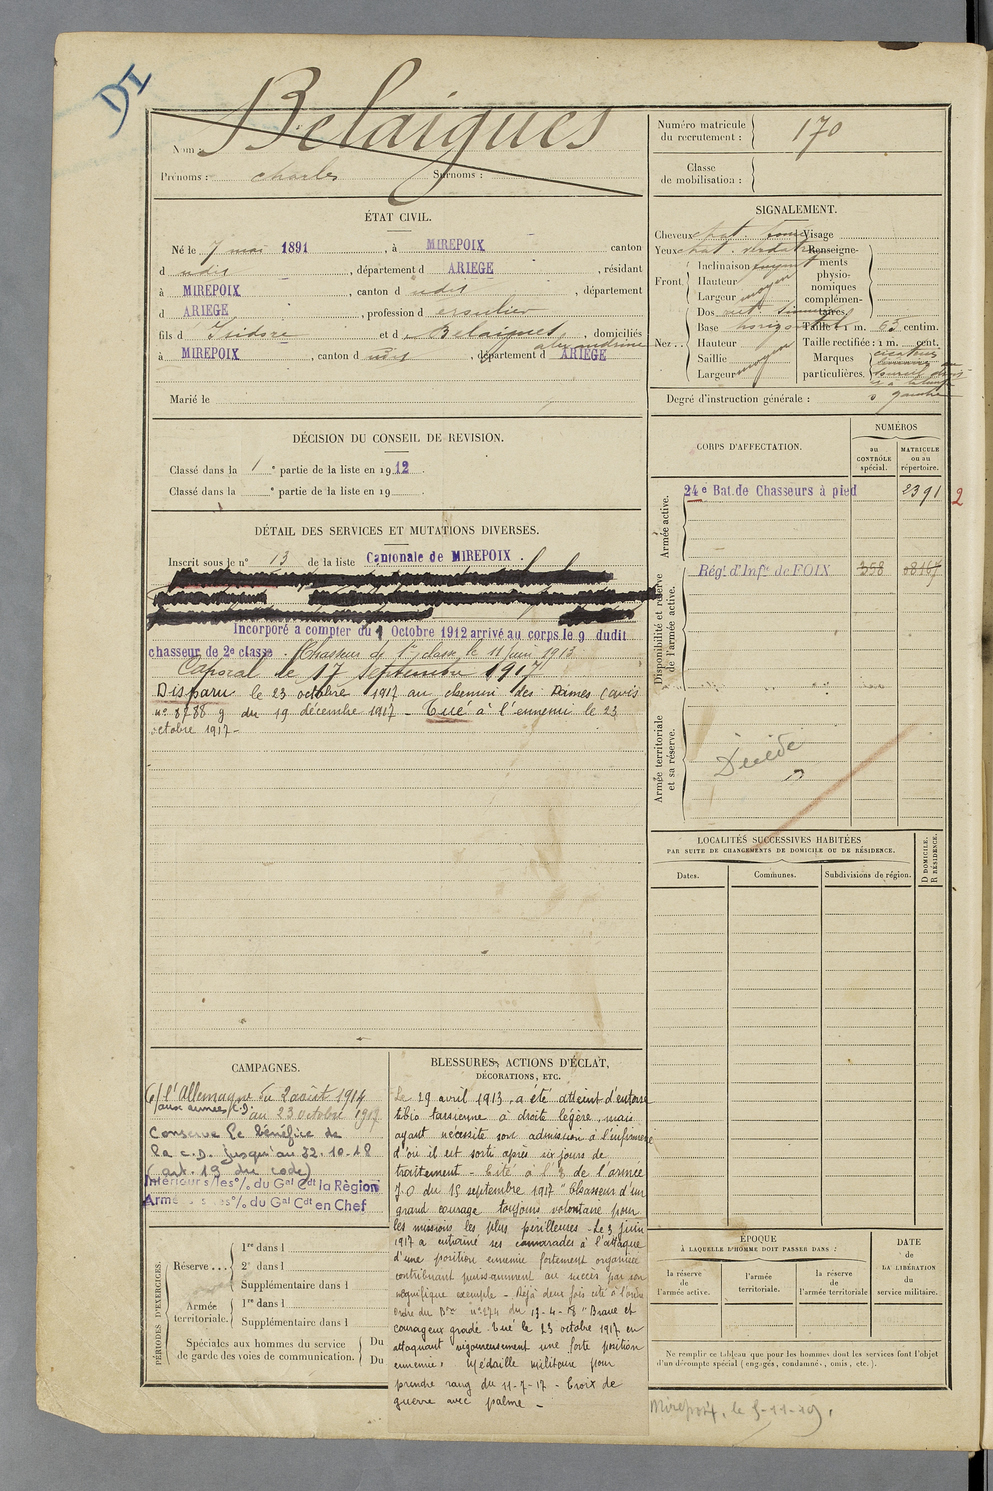 DI
Nom : Belaigues
Prénoms : Charles Surnoms :
ÉTAT CIVIL.
Né le 7 mai 1891, à MIREPOIX canton
d udit, département d ARIEGE, résidant
à MIREPOIX, canton d udit, département
d ARIEGE, profession d
fils d Isidore et d Belaigues, domiciliés
alexandrine
à MIREPOIX, canton d udit, département d ARIEGE
Marié le
DÉCISION DU CONSEIL DE REVISION.
Classé dans la 1 e partie de la liste en 1912.
Classé dans la e partie de la liste en 19 .
DÉTAIL DES SERVICES ET MUTATIONS DIVERSES.
Inscrit sous le n° 13 de la liste Cantonale de MIREPOIX.
Incorporé a compter du 1 Octobre 1912 arrivé au corps le 9 dudit
chasseur de 2e classe. Chasseur de 1re classe le 11 juin 1913
Caporal le 17 Septembre 1917
Disparu le 23 octobre 1917 au chemin des Dames (avis
n° 8788 g du 19 décembre 1917 - Tué à l'ennemi le 23
octobre 1917 -
CAMPAGNES.
C/ l'Allemagne Du 2 août 1914
aux armées (C.D.) au 23 octobre 1917
Conserve le bénéfice de
la C.D. jusqu'au 22.10.18
(art. 19 du code)
Intérieur s/les % du Gal Cdt la Région
Armée s/les % du Gal Cdt en Chef
PÉRIODES D'EXERCICES.
Réserve...
1re dans l
2e dans l
Supplémentaire dans l
Armée territoriale.
1re dans l
Supplémentaire dans l
Spéciales aux hommes du service
de garde des voies de communication.
Du
Du
BLESSURES, ACTIONS D'ÉCLAT,
DÉCORATIONS, ETC.
Le 29 avril 1913, a été atteint d'entorse
tibio tarsienne à droite légère, mais
ayant nécessité son admission à l'infirmerie
d'où il est sorti après six jours de
traitement - Cité à l' de l'armée
J.O du 15 septembre 1917 "Chasseur d'un
grand courage toujours volontaire pour
les missions les plus périlleuses - Le 3 juin
1917 a entraîné ses camarades à l'attaque
d'une position ennemie fortement organisée
contribuant puissamment au succès par son
magnifique exemple - Déjà deux fois cité à l'ordre
ordre du n° 174 du 13-4-18 "Brave et
courageux gradé tué le 23 octobre 1917 en
attaquant vigoureusement une forte position
ennemie. Médaille militaire pour
prendre rang du 11-7-17 - Croix de
guerre avec palme -
Numéro matricule
du recrutement : 170
Classe
de mobilisation :
SIGNALEMENT.
Cheveux chat.
Yeux chat. verdatre
Front.
Inclinaison fuyant
Hauteur
Largeur moyen
Nez...
Dos
Base horizontal
Hauteur
Saillie
Largeur moyen
Visage
Renseigne-
ments
physio-
nomiques
complémen-
taires.
Taille 1 m. 65 centim.
Taille rectifiée : 1 m. cent.
Marques
particulières.
cicatrice
à gauche
Degré d'instruction générale :
CORPS D'AFFECTATION.
NUMÉROS
au
CONTRÔLE
spécial.
MATRICULE
ou au
répertoire.
Armée active.
24e Bat. de Chasseurs à pied 2391 2
Disponibilité et réserve
de l'armée active.
Régt. d'Infie de FOIX 358 08167
Armée territoriale
et sa réserve.
Décédé
LOCALITÉS SUCCESSIVES HABITÉES
PAR SUITE DE CHANGEMENTS DE DOMICILE OU DE RÉSIDENCE.
D DOMICILE.
R RÉSIDENCE.
Dates.
Communes.
Subdivisions de région.
ÉPOQUE
À LAQUELLE L'HOMME DOIT PASSER DANS :
la réserve
de
l'armée active.
l'armée
territoriale.
la réserve
de
l'armée territoriale
DATE
de
LA LIBÉRATION
du
service militaire.
Ne remplir ce tableau que pour les hommes dont les services font l'objet
d'un décompte spécial (engagés, condamnés, omis, etc.).
Mirepoix, le 5-11-19.